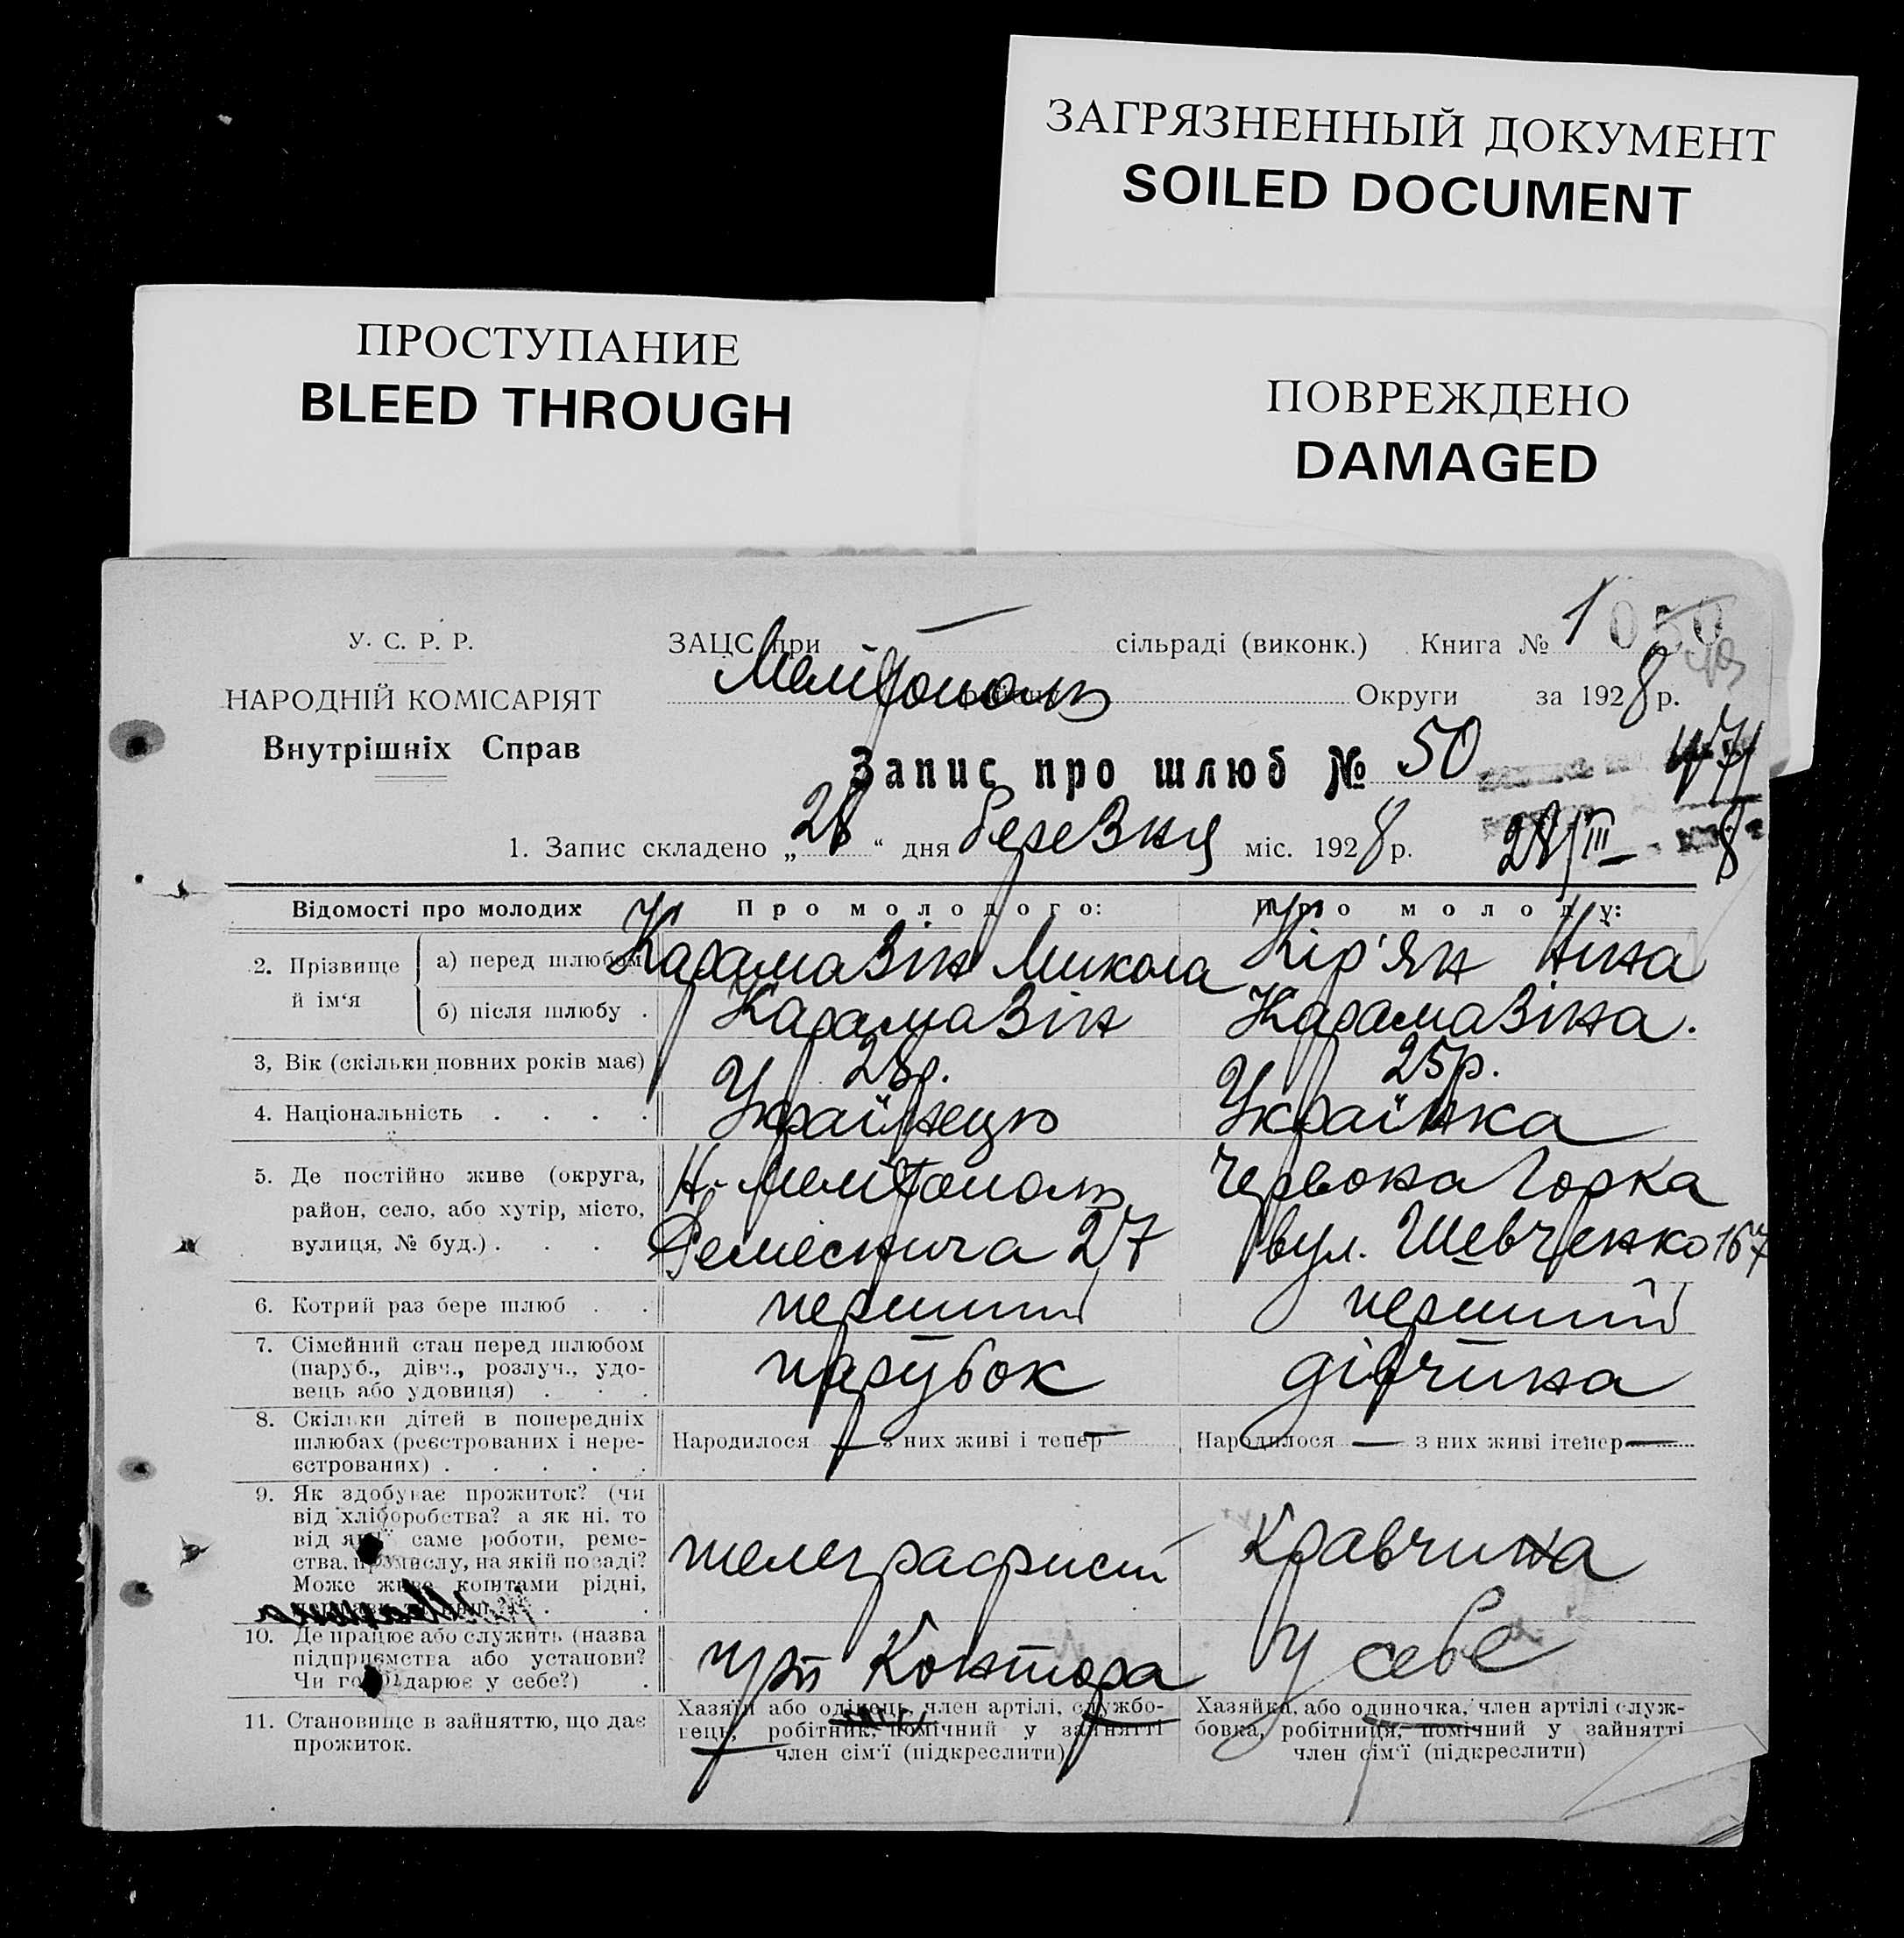 ЗАГРЯЗНЕННЫЙ ДОКУМЕНТ
SOILED DOCUMENT
ПРОСТУПАНИЕ
BLEED THROUGH
ПОВРЕЖДЕНО
DAMAGED
У. С. Р. Р.
НАРОДНІЙ КОМІСАРІЯТ
Внутрішніх Справ
ЗАЦС при — сільраді (виконк.) Книга № 1
Мелітополь Округи за 1928 р.
Запис про шлюб № 50
1. Запис складено „28“ дня березня міс. 1928 р.
28/III 8
Відомості про молодих
Про молодого:
Про молоду:
2. Прізвище й ім‘я
а) перед шлюбом
Карамазін Микола
Кір'ян Ніна
б) після шлюбу .
Карамазін
Карамазіна.
3, Вік (скільки повних років має)
28р.
25р.
4. Національність . . . .
Українець
Українка
5. Де постійно живе (округа,
район, село, або хутір, місто,
вулиця, № буд.) . . .
Н-Мелітополь
27
Червона Горка
вул. Шевченко 167
6. Котрий раз бере шлюб . .
перший
перший
7. Сімейний стан перед шлюбом
(паруб., дівч., розлуч., удо-
вець або удовиця) . . .
парубок
дівчина
8. Скільки дітей в попередніх
шлюбах (реєстрованих і нере-
єстрованих) . . . . .
Народилося — з них живі і тепер —
Народилося — з них живі і тепер —
9. Як здобуває прожиток? (чи
від хліборобства? а як ні. то
від якої саме роботи, реме-
ства, промислу, на якій посаді?
Може живе коштами рідні,
телеграфист
Кравчиха
10. Де працює або служить (назва
підприємства або установи?
Чи господарює у себе?) .
Контора
У себе
11. Становище в зайняттю, що дає
прожиток.
Хазяїн або одінець, член артілі, службо-
вець, робітник, помічний у зайнятті
член сім‘ї (підкреслити)
Хазяйка, або одиночка, член артілі служ-
бовка, робітниця, помічний у зайнятті
член сім‘ї (підкреслити)